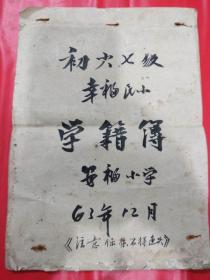 初六七级
幸福民小
学籍簿
安福小学
63年12月
《注意保集不得遗失》